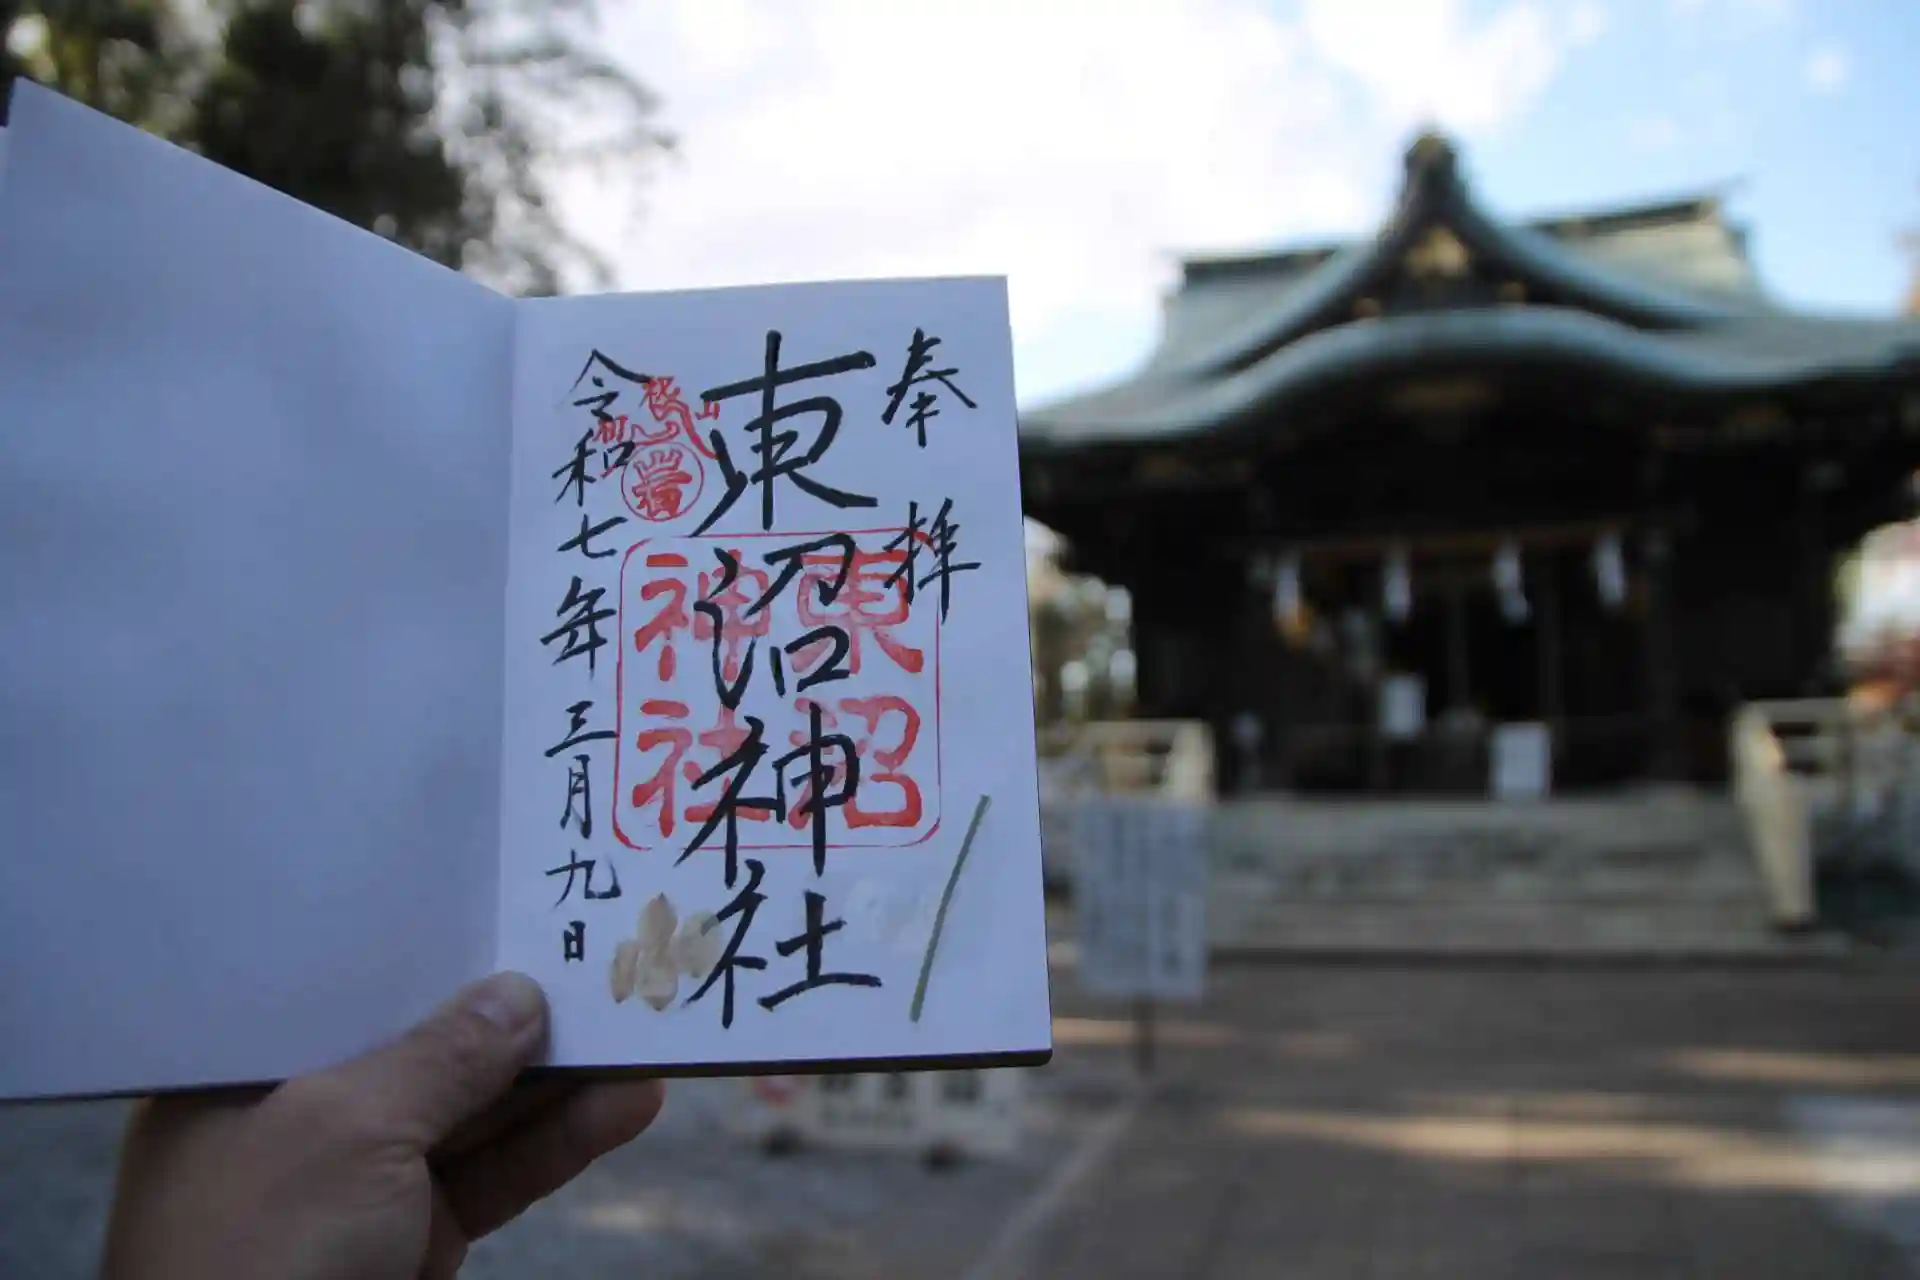 奉拝
東沼神社
東沼神社
令和七年三月九日